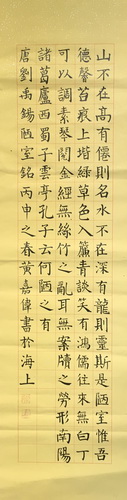 山不在高有僊則名水不在深有龍則靈斯是陋室惟吾
德馨苔痕上堦綠草色入簾青談笑有鴻儒往來無白丁
可以調素琴閱金經無絲竹之亂耳無案牘之勞形南陽
諸葛廬西蜀子雲亭孔子云何陋之有
唐劉禹錫陋室銘丙申之春黃嘉偉書於海上